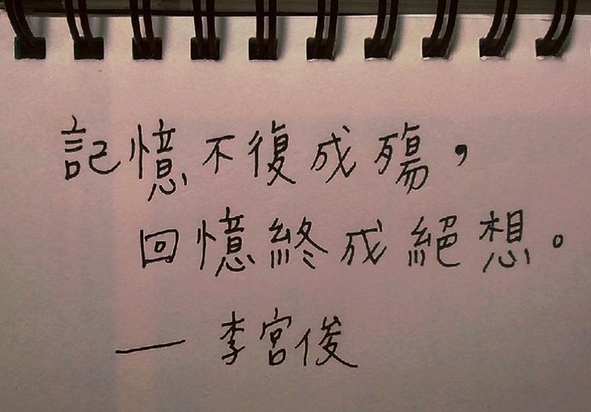 記憶不復成殤，
回憶終成絕想。
— 李宮俊